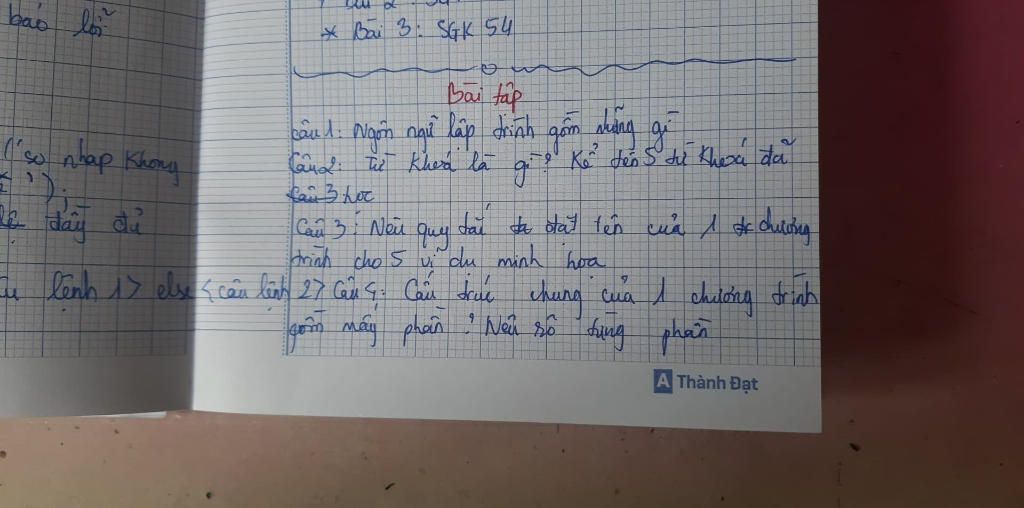 báo lỗi
('so nhap khong
');
đầy đủ
lệnh 1> else <câu lệnh 2>
* Bài 3: SGK 54
Bài tập
Câu 1: Ngôn ngữ lập trình gồm những gì
Câu 2: Từ khoá là gì? Kể tên 5 từ khoá đã
Câu 3 học
Câu 3: Nêu quy tắc đặt tên của 1 chương
trình cho 5 ví dụ minh họa
Câu 4: Cấu trúc chung của 1 chương trình
gồm mấy phần? Nêu rõ từng phần
A Thành Đạt